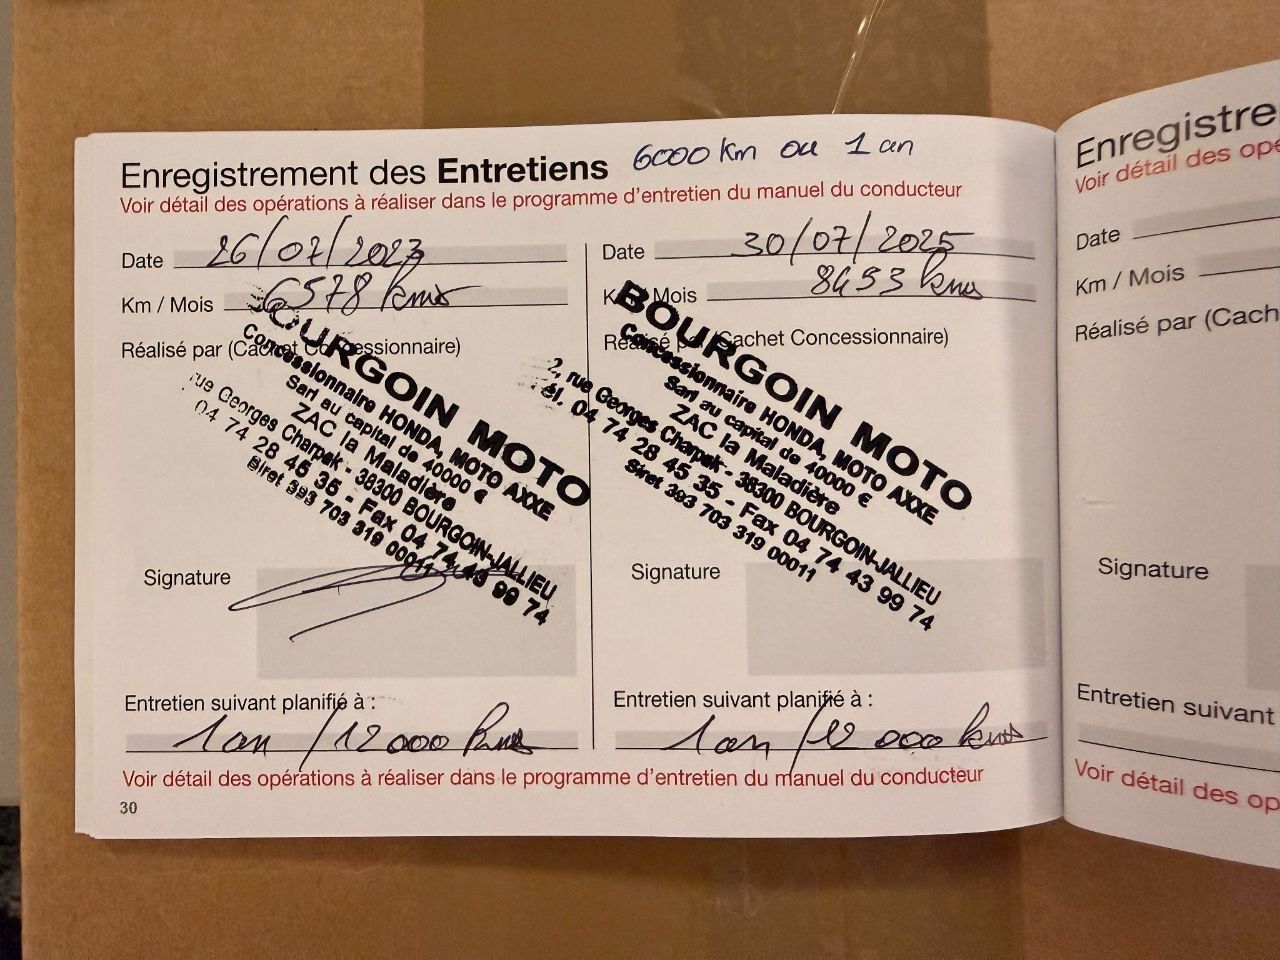 Enregistrement des Entretiens 6000 km ou 1 an
Voir détail des opérations à réaliser dans le programme d'entretien du manuel du conducteur
Date 26/07/2023
Km / Mois 6578 kms
Réalisé par (Cachet Concessionnaire)
BOURGOIN MOTO
Concessionnaire HONDA, MOTO AXXE
Sarl au capital de 40000 €
ZAC la Maladière
rue Georges Charpak - 38300 BOURGOIN-JALLIEU
04 74 28 45 35 - Fax 04 74 43 99 74
Siret 393 703 319 00011
Signature
Entretien suivant planifié à :
1 an / 12 000 kms
Date 30/07/2025
Km / Mois 8493 kms
Réalisé par (Cachet Concessionnaire)
BOURGOIN MOTO
Concessionnaire HONDA, MOTO AXXE
Sarl au capital de 40000 €
ZAC la Maladière
2, rue Georges Charpak - 38300 BOURGOIN-JALLIEU
Tél. 04 74 28 45 35 - Fax 04 74 43 99 74
Siret 393 703 319 00011
Signature
Entretien suivant planifié à :
1 an / 12 000 kms
Voir détail des opérations à réaliser dans le programme d'entretien du manuel du conducteur
30
Enregistre
Voir détail des opé
Date
Km / Mois
Réalisé par (Cach
Signature
Entretien suivant
Voir détail des op